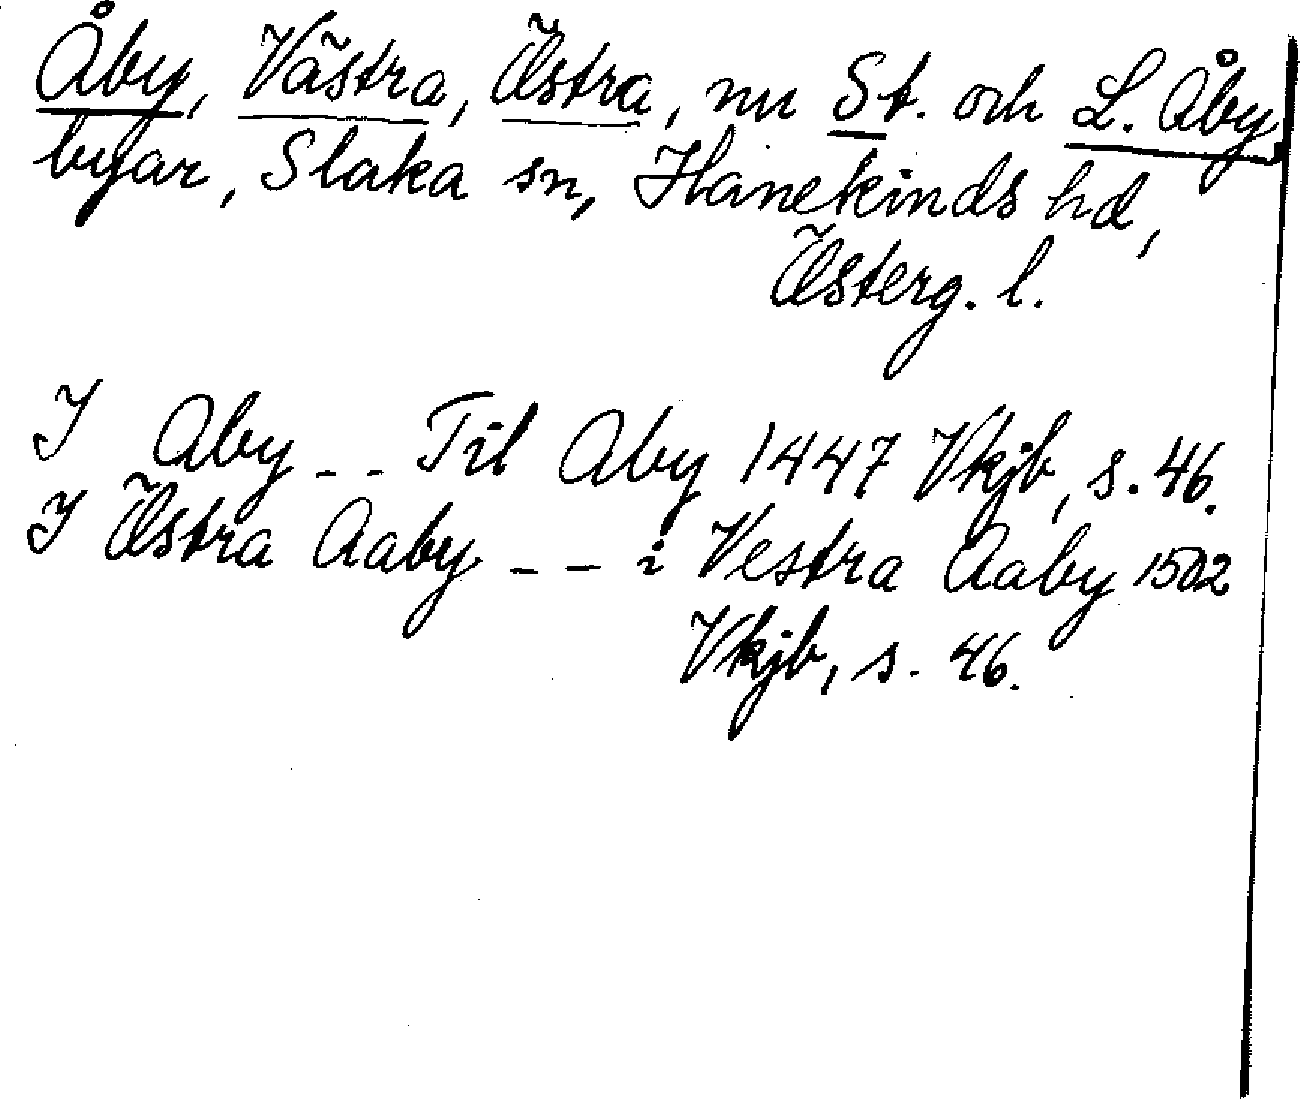 Åby, Västra, Östra, nu St. och L. Åby
byar, Slaka sn, Hanekinds hd,
Österg. l.
I Aby -- Til Aby 1447 Vkjb, s. 46.
I Östra Aaby -- i Vestra Aaby 1502
Vkjb, s. 46.